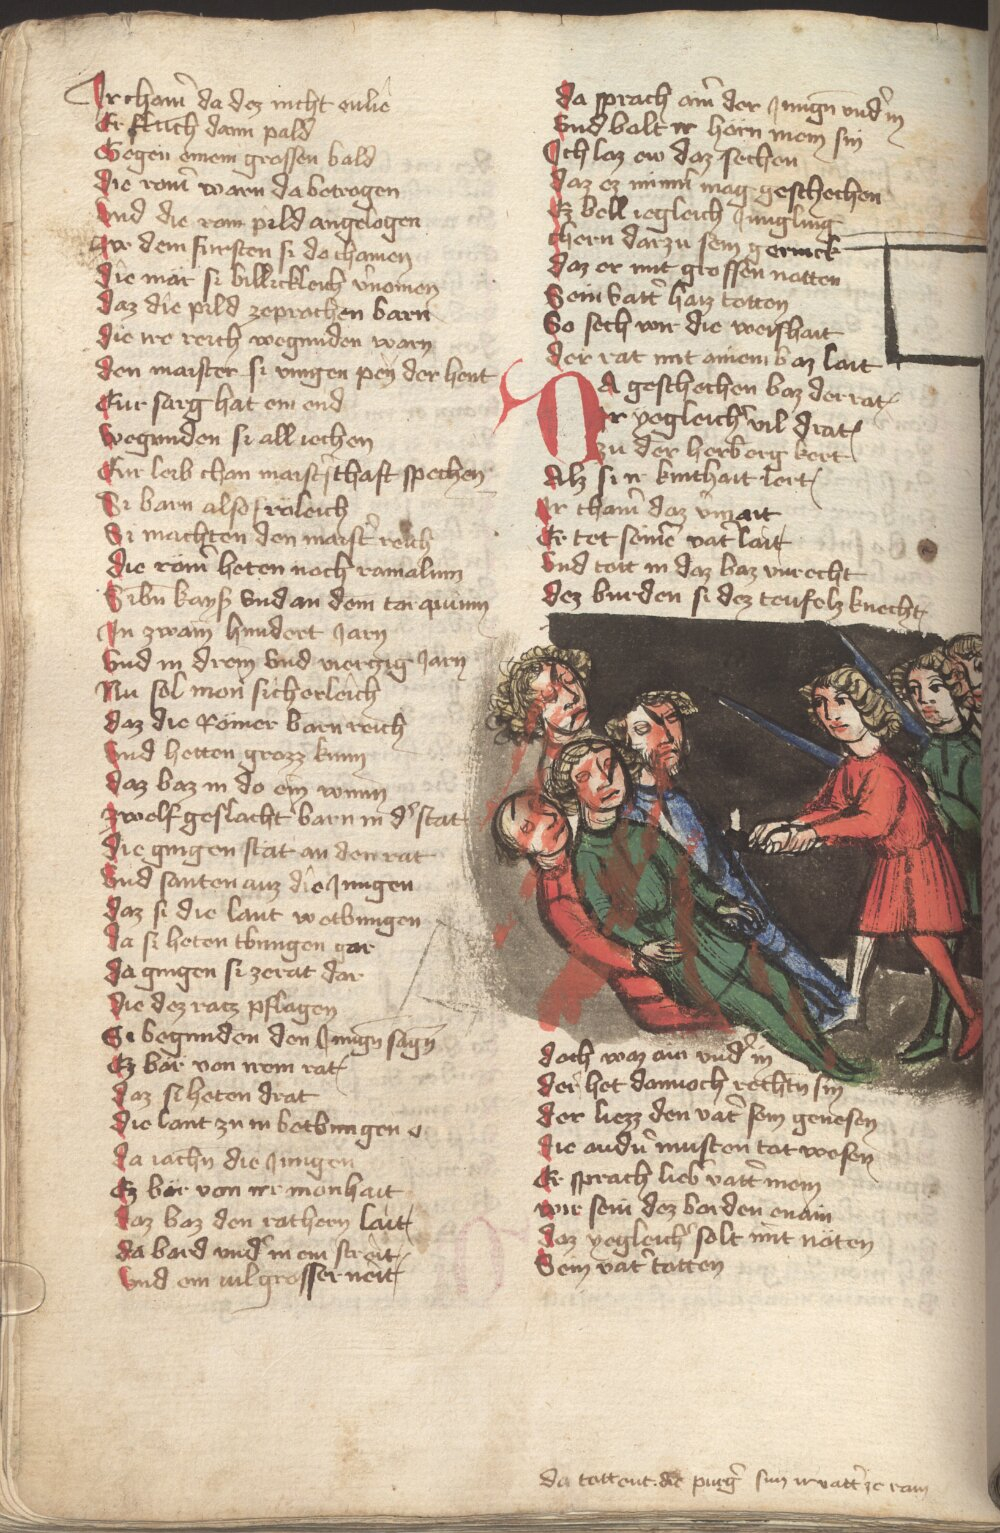 Ir cham̄ da dez nicht enlie
Er fluch dann pald
Gegen einem grossen bald
die rom̄ warn da betrogen
Vnd die rom pild angelogen
Vor dem fursten si do chamen
die mär si billickleich v̄nomen
daz die pild zeprochen barn
die ire reich wegunden warn
den maister si viengen pey der hent
Eur sarg hat ein end
wegunden si all iechen
Eur leib chan maist̄schaft spechen
Si barn also fröleich
Si machten den maist̄ reich
die röm̄ heten noch ramalum
Sibn̄ kayß vnd an dem tarquinm
In zwain hundert Jarn
Vnd in drein vnd vierczig Jarn
Nu sol mon sicherleich
daz die Römer barn reich
Vnd hetten grozz kunn
daz baz in do ein wunn
zwelf geslacht barn in d̄ stat
die gingen stät an den rat
Vnd santen auz die Jungen
daz si die laut wetbungen
da si heten tbungen gar
da gingen si zerat dar
die dez ratz pflagen
Si begunden den Jungn̄ sagn̄
Ez bär von irem rat
daz si heten drat
die lant zu in betbungen
da iachn̄ die Jungen
Ez bär von irr monhait
daz baz den rathern lait
da bard vnd̄ in ein streit
Vnd ein vil grosser neit
da sprach ain̄ der Jungn̄ vnd̄ in
Vnd bolt ir hörn mein sin
Ich laz ew daz sechen
daz ez nimm̄ mag geschechen
Ez bell iegleich Jungling
chern darzu sein gerinck
daz er mit grossen notten
Sein vatt̄ haiz totten
So sech wir die weishait
der rat mit ainem baz lait
Da geschechen baz der rat
Ir yegleich̄ vil drat
zu der herberg kert
Alz si ir kinthait lert
Ir cham̄ daz v̄mait
Er tet seinē vat̄ lait
Vnd tott in daz baz vnrecht
dez burden si dez teufelz knecht
doch waz ain vnd̄ in
der het dannoch rechtn̄ sin
der liezz den vat̄ sein genesen
die andn̄ musten tot wesen
Er sprach lieb̄ vatt̄ mein
wir sein dez borden enain
daz yegleich̄ solt mit nöten
Sein vat̄ totten
da tottent die purḡ sun ir vatt̄ ze ram